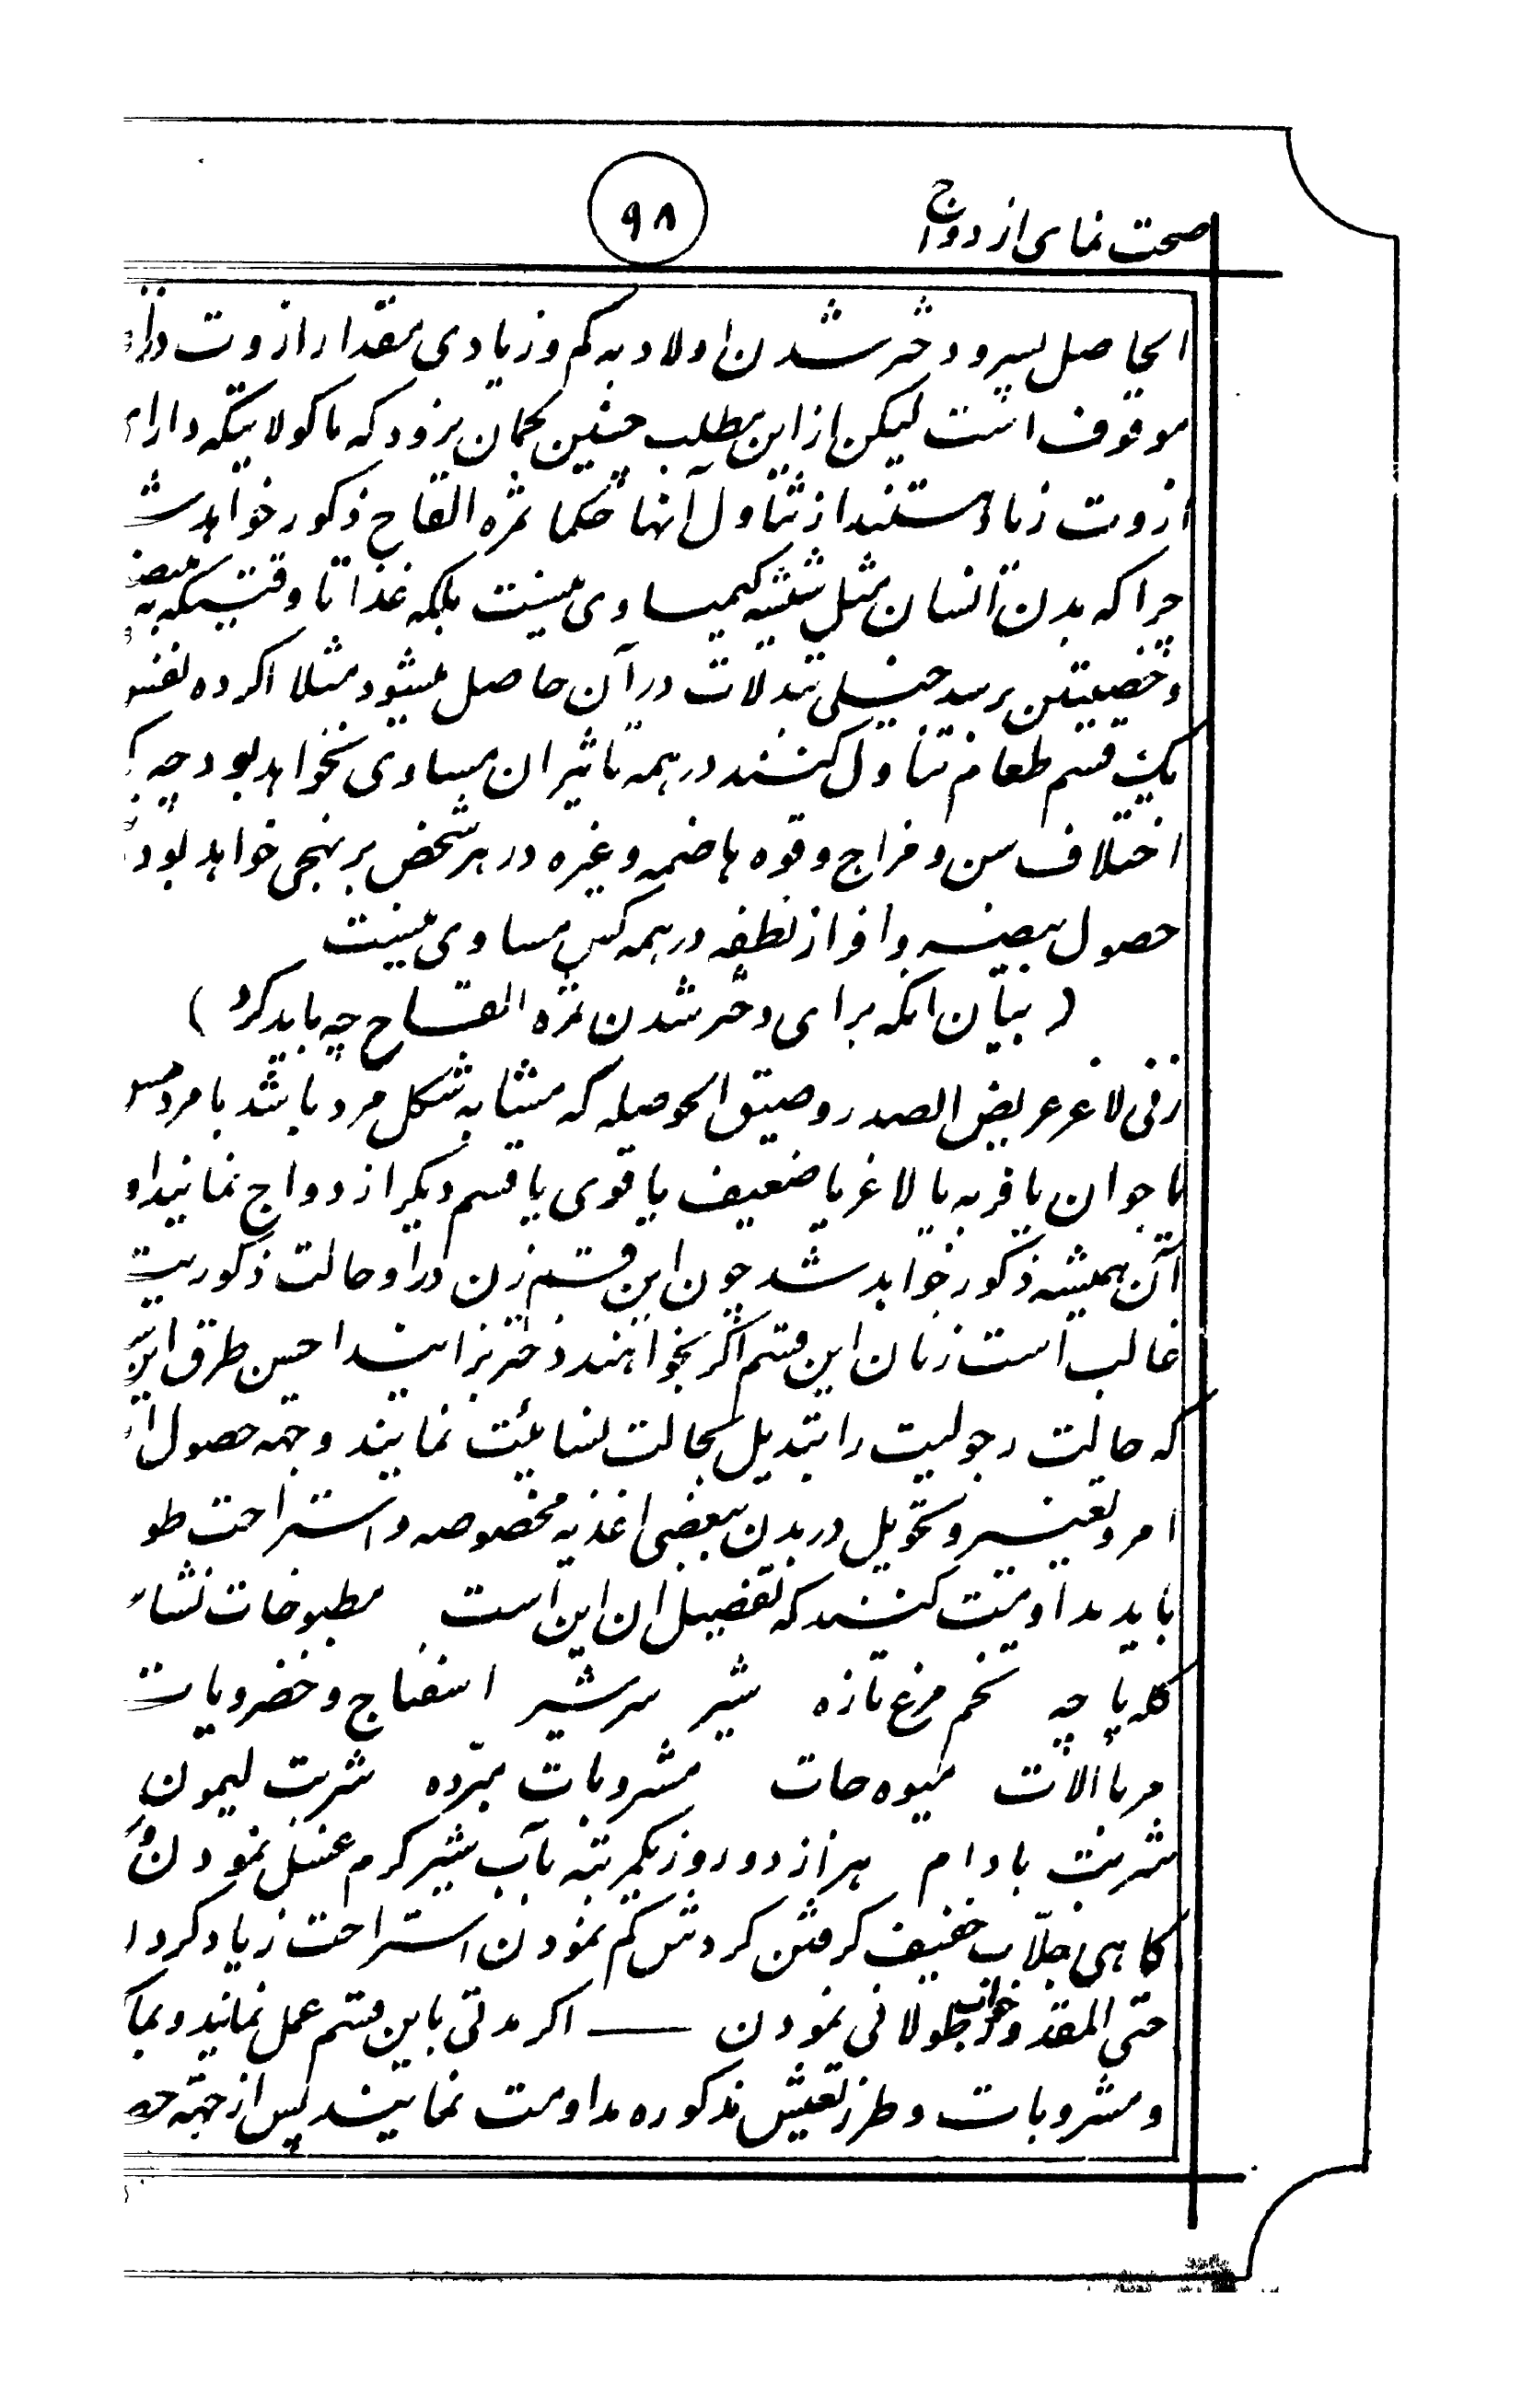 صحت نمای ازدواج
۹۸
الحاصل پسر و دختر شدن اولاد به کم و زیادی مقدار ازوت
موقوف است لیکن از این مطلب چنین گمان نرود که ماکولاتیکه دارای
ازوت زیاد هستند از تناول آنها حکما ثمره القاح ذکور خواهد
چرا که بدن انسان مثل شیشه کیمیاوی نیست بلکه غذا تا وقتیکه به
و خصیتین برسد خیلی تبدلات در آن حاصل میشود مثلا اکر ده
یک قسم طعام تناول کنند در همه تاثیر ان مساوی نخواهد بود چه
اختلاف سن و مزاج و قوه هاضمه و غیره در هر شخص بر نهجی خواهد بود
حصول بیضه و افراز نطفه در همه کس مساوی نیست
( بیان انکه برای دختر شدن ثمره القاح چه باید کرد )
زنی لاغر عریض الصدر و ضیق الحوصله که مشابه شکل مرد باشد با مرد
یا جوان یا فربه یا لاغر یا ضعیف یا قوی یا قسم دیگر ازدواج نماید
آن همیشه ذکور خواهد شد چون این قسم زن در او حالت ذکوریت
غالب است زنان این قسم اگر بخواهند دختر بزایند احسن طرق این
که حالت رجولیت را تبدیل بحالت نسائیت نمایند و جهه حصول
امر و تغییر و تحویل در بدن ببعضی اغذیه مخصوصه و استراحت
باید مداومت کنند که تفصیل ان این است مطبوخات
کله پاچه تخم مرغ تازه شیر سرشیر اسفناج و خضرویات
مرباالات میوه جات مشروبات مبرده شربت لیمون
شربت بادام هر از دو روز یکمرتبه بآب شیر کرم غسل نمودن و
کاهی جلاب خفیف کرفتن کردش کم نمودن استراحت زیاد کردن
حتی المقدور خواب طولانی نمودن — اکر مدتی باین قسم عمل نمایند
و مشروبات و طرز تعیش مذکوره مداومت نمایند پس از جهه